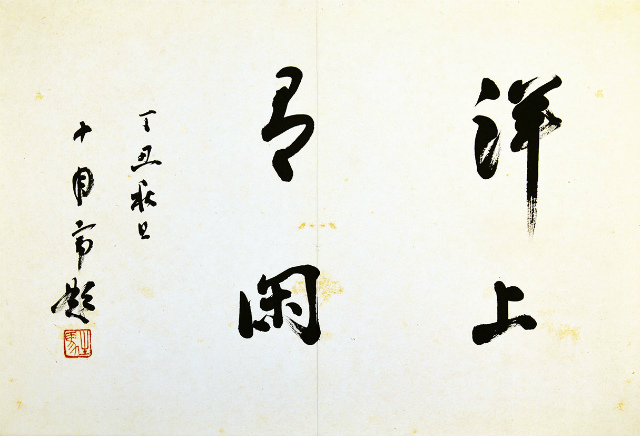 洋上
有閑
丁丑秋日
十月 題